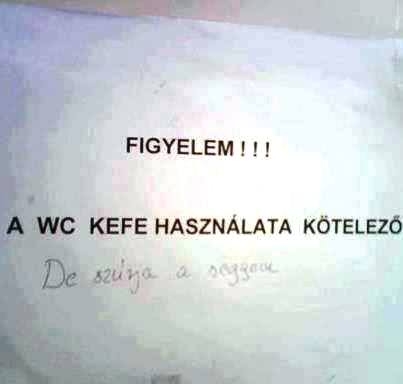 FIGYELEM ! ! !
A WC KEFE HASZNÁLATA KÖTELEZŐ
De szúrja a seggem